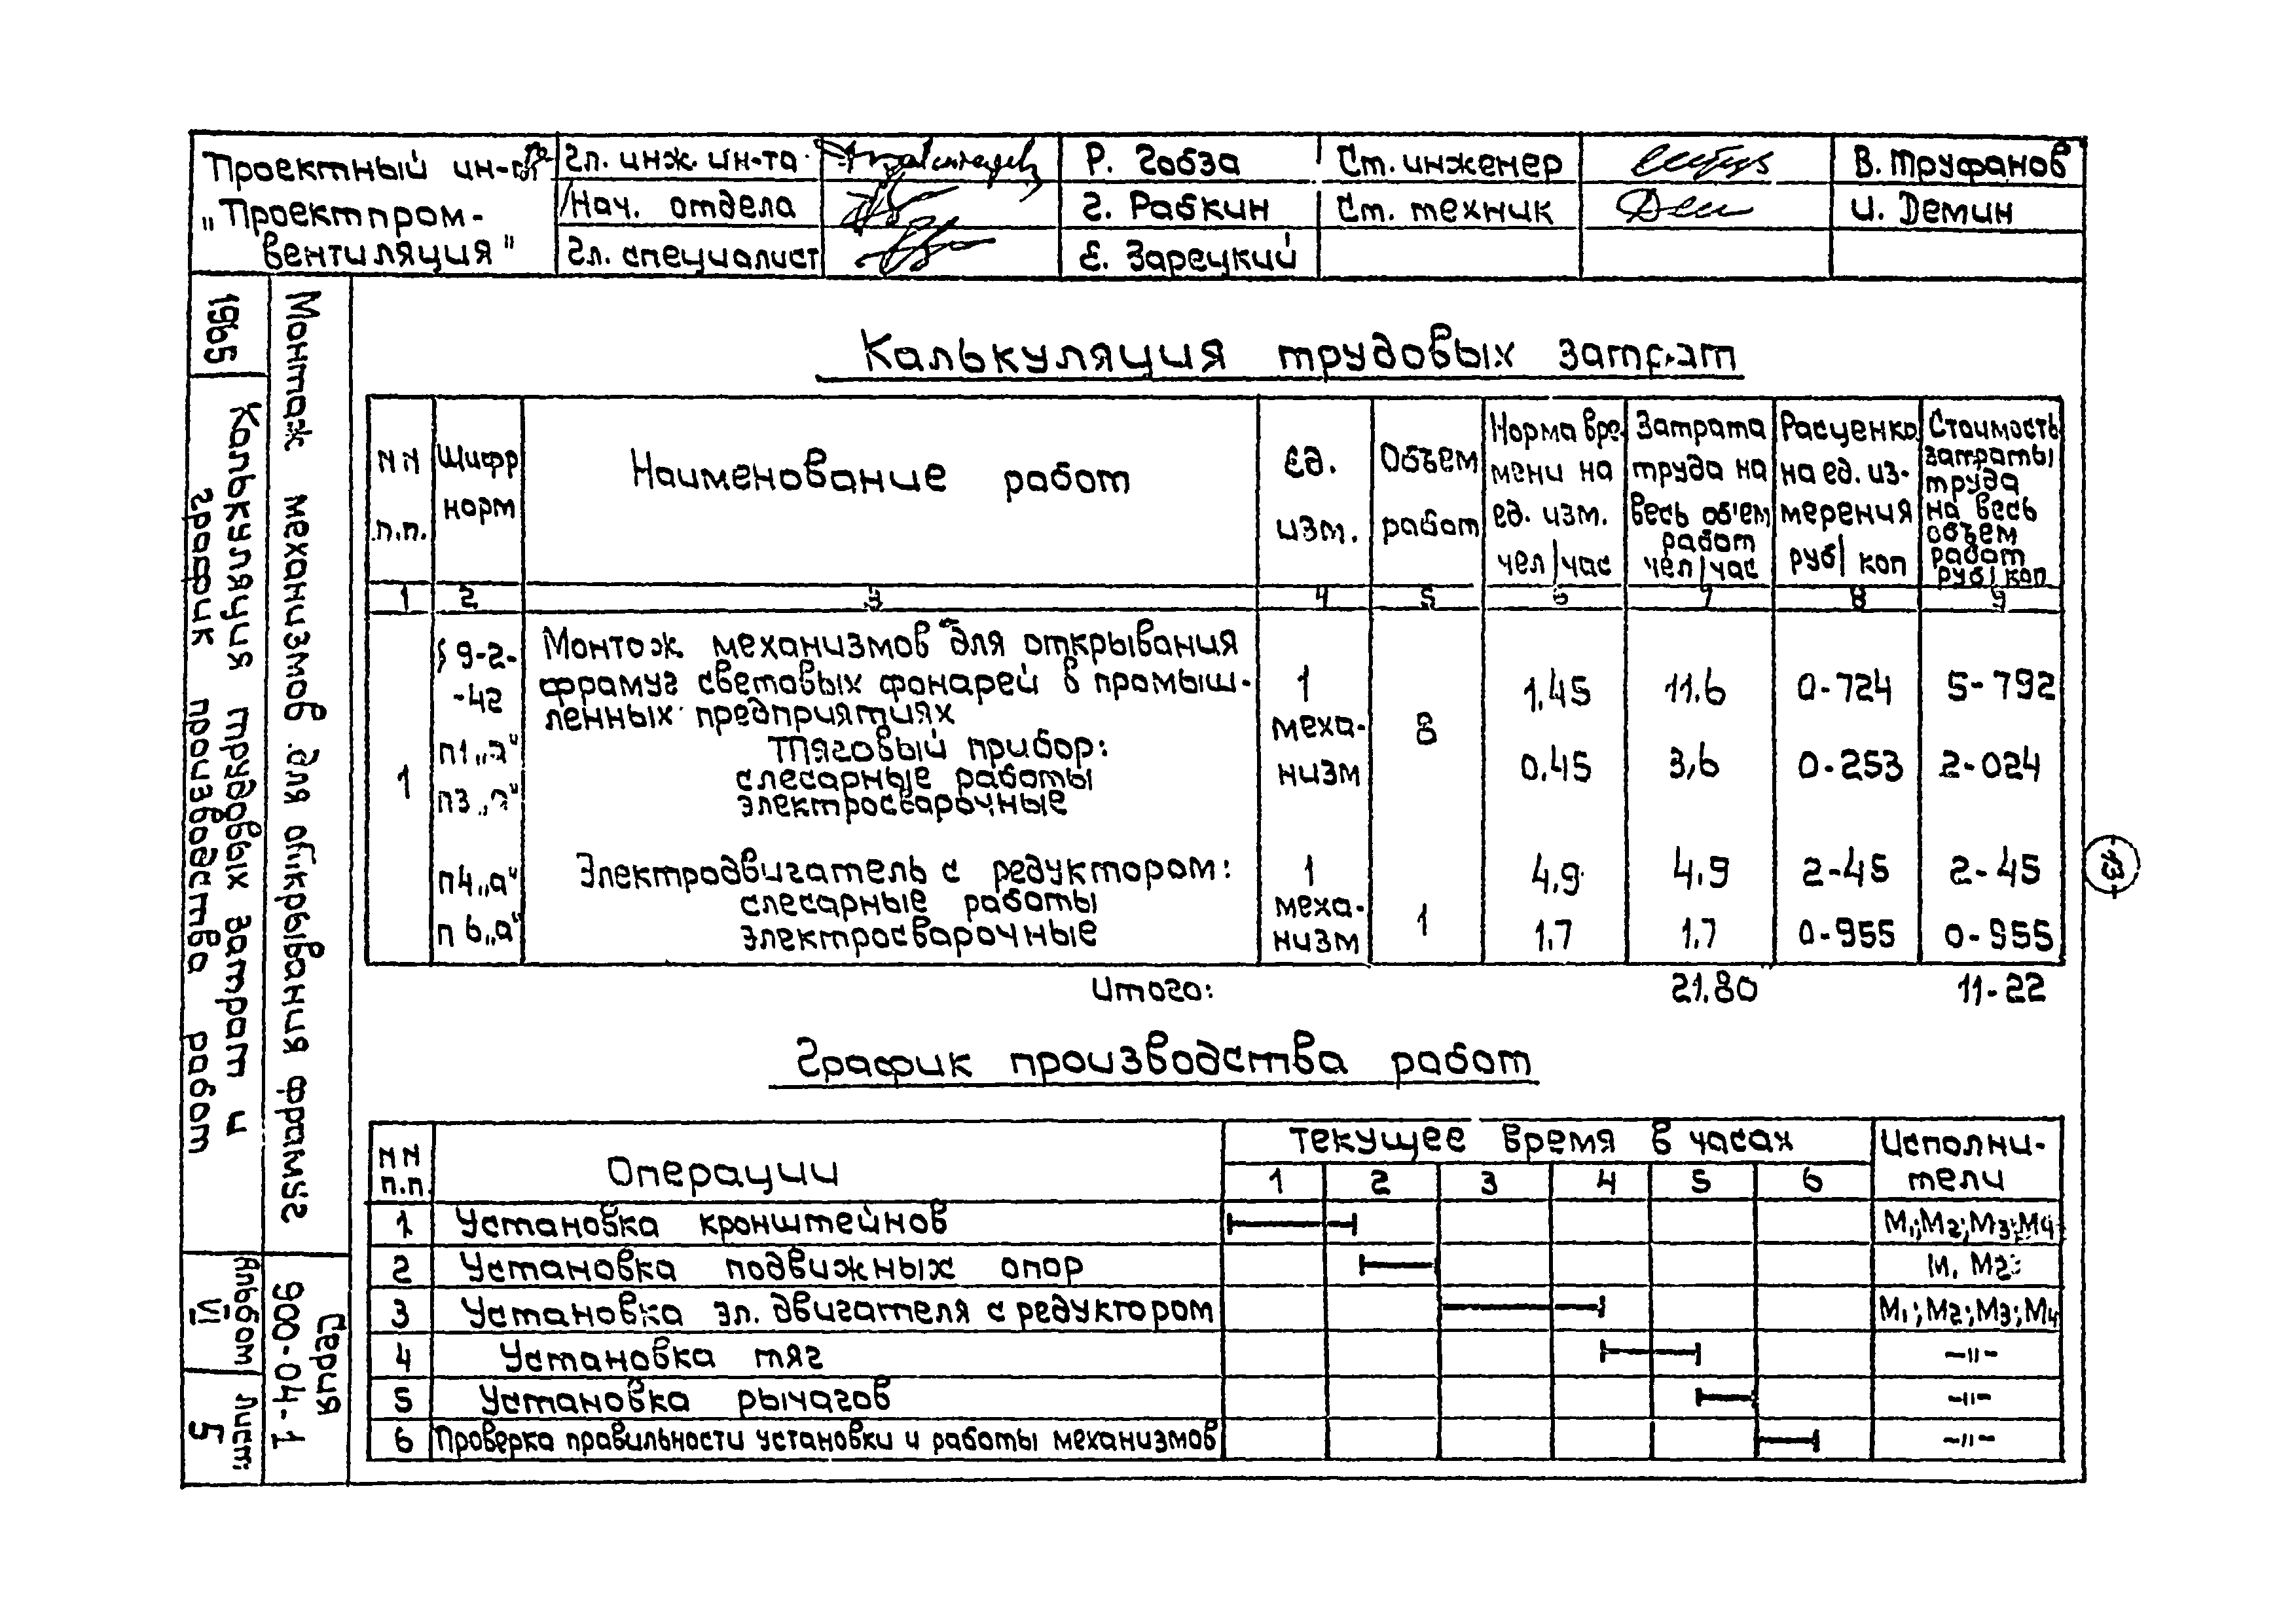 Проектный ин-т
„Проектпром-
вентиляция"
Гл. инж. ин-та
Нач. отдела
Гл. специалист
Р. Гобза
Г. Рабкин
Е. Зарецкий
Ст. инженер
Ст. техник
В. Труфанов
И. Демин
1965
Калькуляция трудовых затрат и
график производства работ
Монтаж механизмов для открывания фрамуг
Альбом
VI
Лист
5
Серия
900-04-1
Калькуляция трудовых затрат
NN
п.п.
Шифр
норм
Наименование работ
Ед.
изм.
Объем
работ
Норма вре-
мени на
ед. изм.
чел/час
Затрата
труда на
весь об'ем
работ
чел/час
Расценка
на ед. из-
мерения
руб/коп
Стоимость
затраты
труда
на весь
объем
работ
руб/коп
1 2 3 4 5 6 7 8 9
1
§ 9-2-
-42
п1„а"
п3„а"
Монтаж механизмов для открывания
фрамуг световых фонарей в промыш-
ленных предприятиях
Тяговый прибор:
слесарные работы
электросварочные
1
меха-
низм
8
1,45 11,6 0-724 5-792
0,45 3,6 0-253 2-024
п4„а"
п6„а"
Электродвигатель с редуктором:
слесарные работы
электросварочные
1
меха-
низм
1
4,9 4,9 2-45 2-45
1,7 1,7 0-955 0-955
Итого: 21,80 11-22
13
График производства работ
NN
п.п.
Операции
Текущее время в часах
1 2 3 4 5 6
Исполни-
тели
1 Установка кронштейнов М1;М2;М3;М4
2 Установка подвижных опор М1 М2
3 Установка эл. двигателя с редуктором М1;М2;М3;М4
4 Установка тяг -"-
5 Установка рычагов -"-
6 Проверка правильности установки и работы механизмов -"-